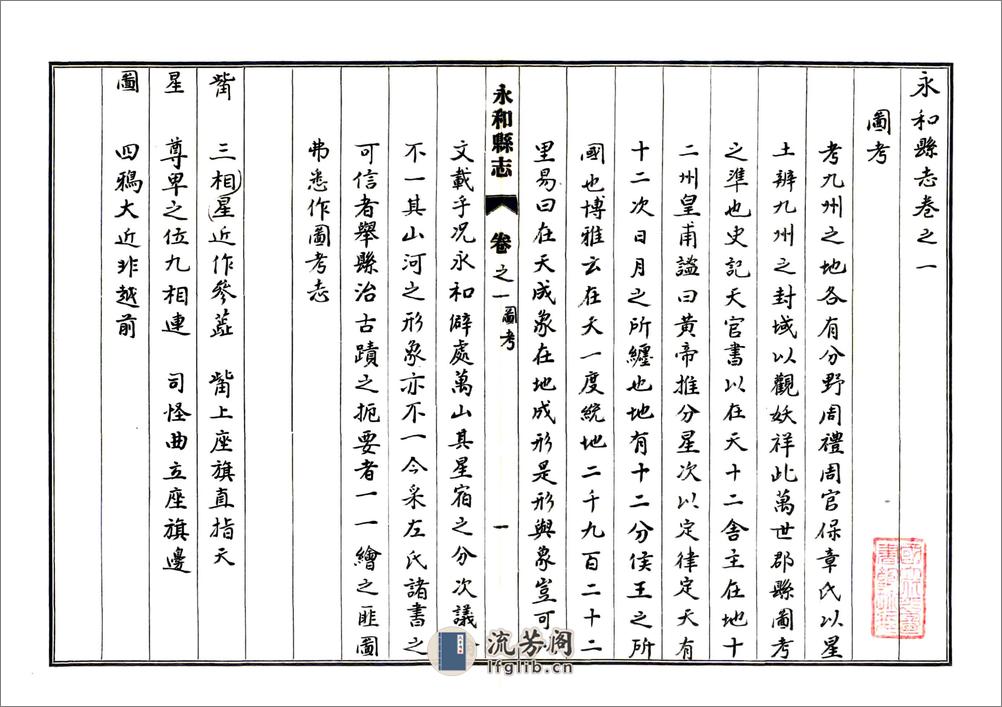 永和縣志卷之一
圖考
考九州之地各有分野周禮周官保章氏以星
土辨九州之封域以觀妖祥此萬世郡縣圖考
之準也史記天官書以在天十二舍主在地十
二州皇甫謐曰黃帝推分星次以定律度天有
十二次日月之所纏也地有十二分侯王之所
國也博雅云在天一度統地二千九百二十二
里易曰在天成象在地成形是形與象豈可
永和縣志 卷之一 圖考 一
文載乎况永和僻處萬山其星宿之分次議
不一其山河之形象亦不一今采左氏諸書之
可信者舉縣治古蹟之扼要者一一繪之匪圖
弗悉作圖考志
觜 三相星近作參蕋 觜上座旗直指天
星 尊卑之位九相連 司怪曲立座旗邊
圖 四鴉大近井越前
流芳阁
lfglib.cn